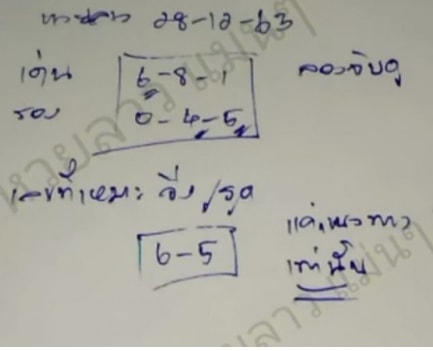 หวยลาว 28-12-63
เด่น 6-8-1 ลองจับดู
รอง 0-4-5
เลขที่เหมาะ วิ่ง/รูด
6-5 แค่แนวทาง
เท่านั้น
หวยลาวแม่นๆ